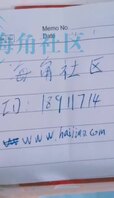 Memo No
Date
海角社区
海角社区
ID: 18911714
www.haijiao.com